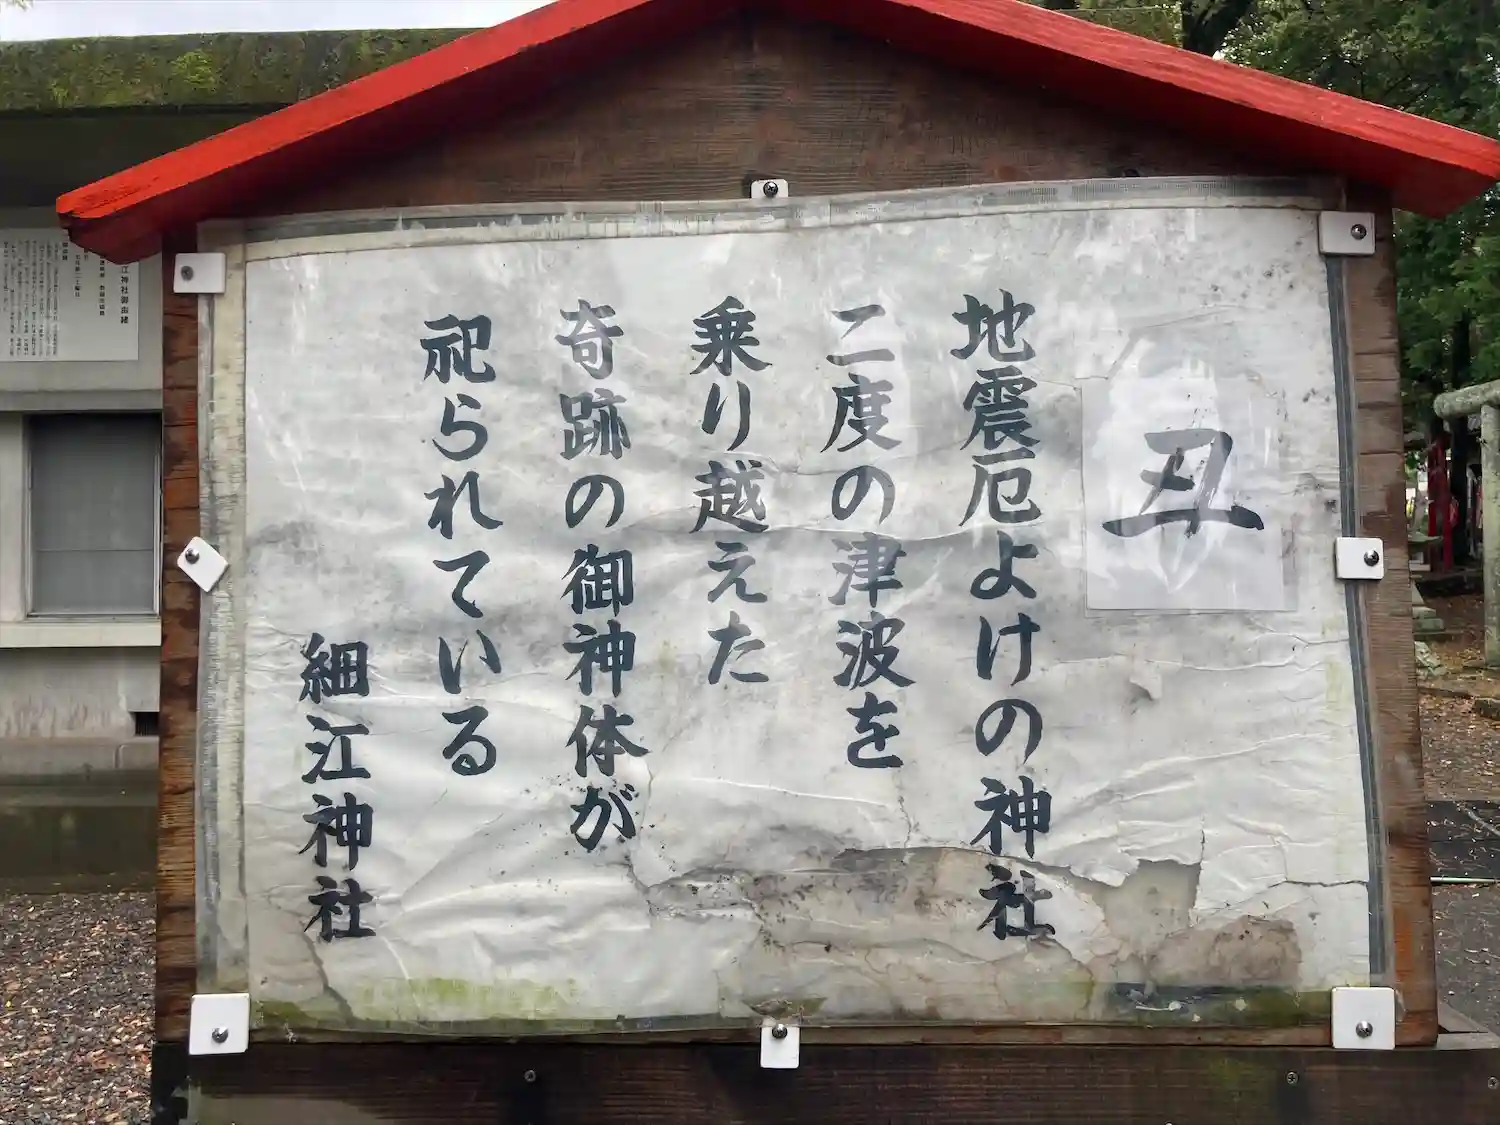 丑
地震厄よけの神社
二度の津波を
乗り越えた
奇跡の御神体が
祀られている
細江神社
江神社御由緒